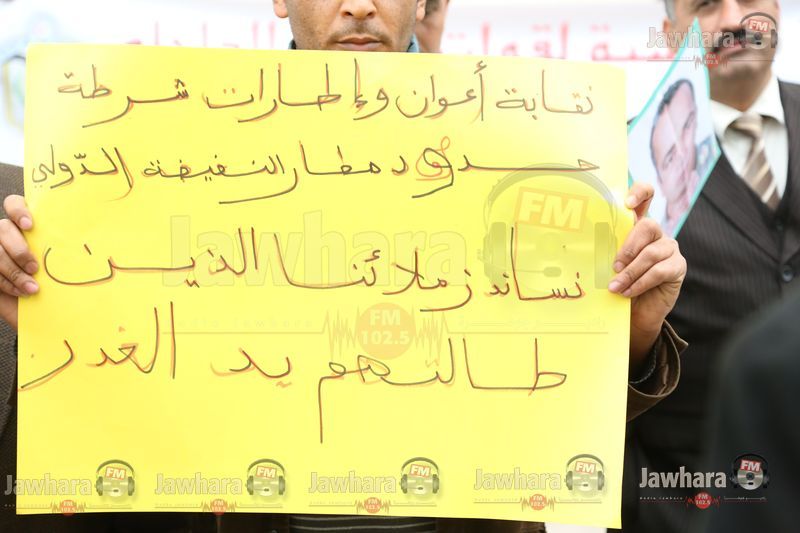 نقابة أعوان وإطارات شرطة
حدود مطار النفيضة الدّولي
نساند زملائنا الذين
طالتهم يد الغدر
Jawhara FM
Jawhara FM
Radio Jawhara
FM 102.5
Jawhara FM
Jawhara FM
Jawhara FM
Jawhara FM
Jawhara FM
Radio Jawhara
FM 102.5